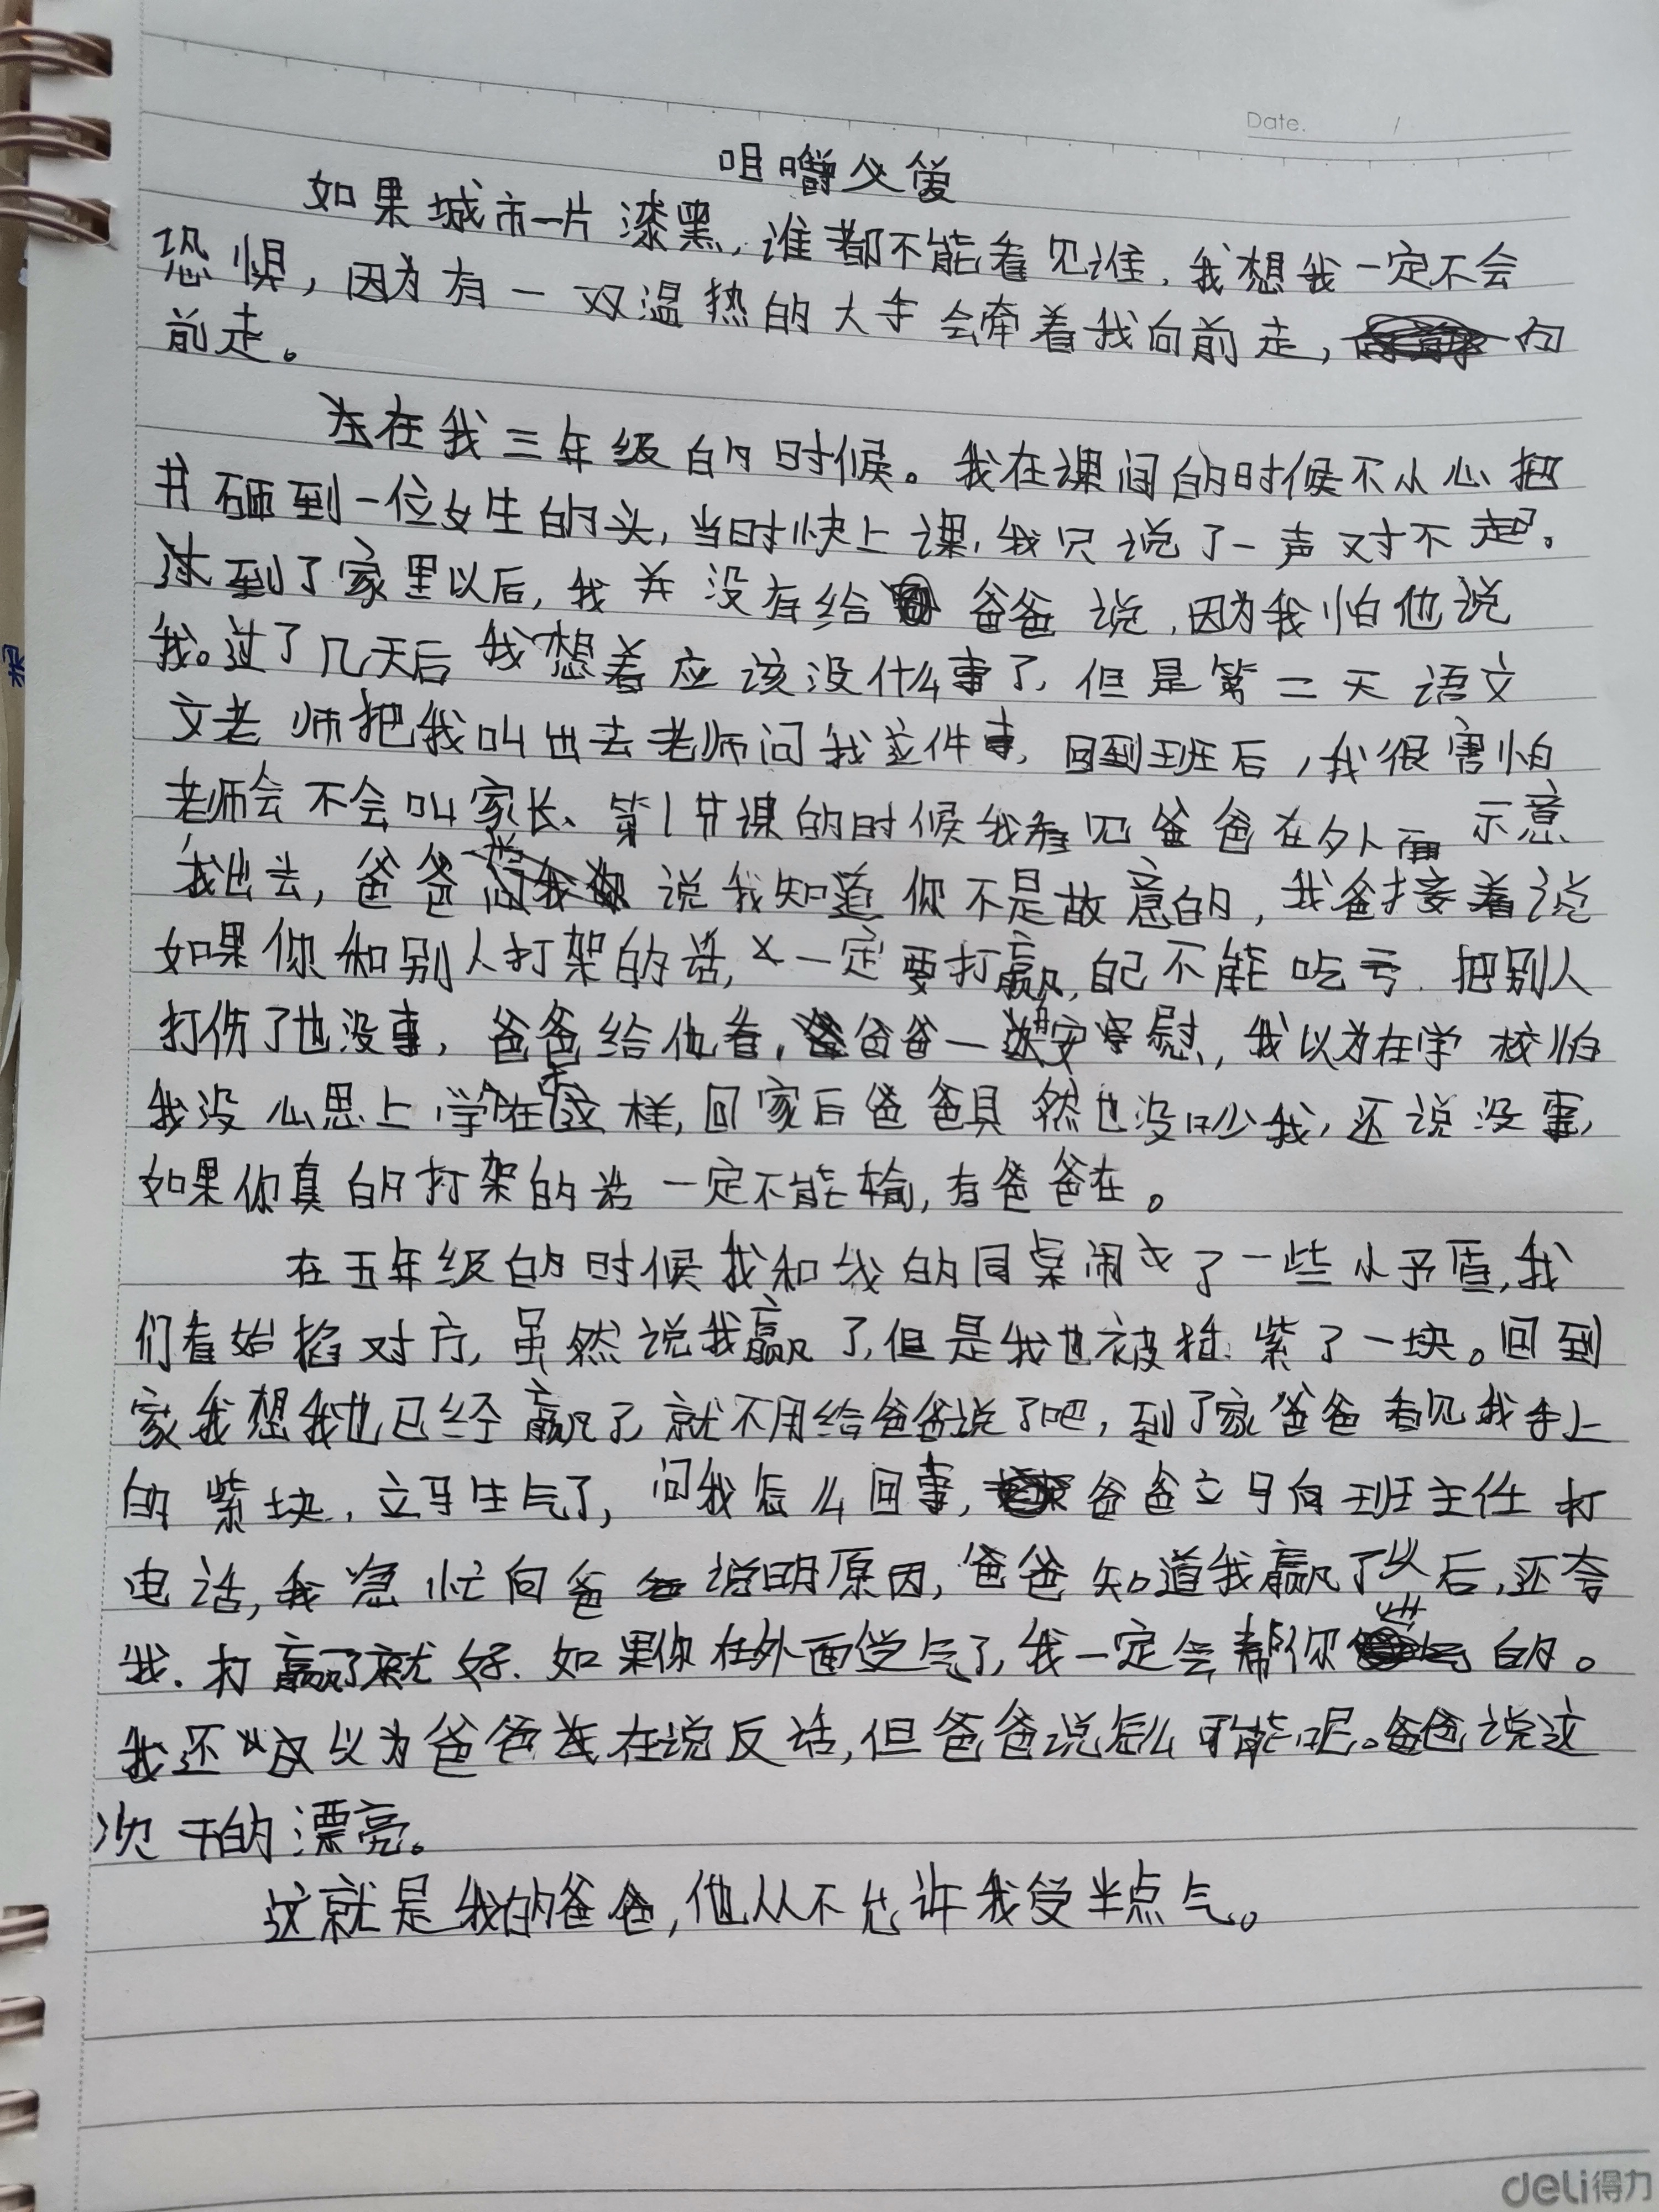 Date. /
咀嚼父爱
如果城市一片漆黑,谁都不能看见谁,我想我一定不会
恐惧,因为有一双温热的大手会牵着我向前走,向
前走。
在我三年级的时候。我在课间的时候不小心把
书砸到一位女生的头,当时快上课,我只说了一声对不起。
到了家里以后,我并没有给爸爸说,因为我怕他说
我。过了几天后我想着应该没什么事了,但是第二天语文
文老师把我叫出去老师问我这件事,回到班后,我很害怕
老师会不会叫家长、第1节课的时候我看见爸爸在外面示意
我出去,爸爸说我知道你不是故意的,我爸接着说
如果你和别人打架的话,一定要打赢,自己不能吃亏.把别人
打伤了也没事,爸爸给他看,爸爸一安慰,我以为在学校怕
我没心思上学在这样,回家后爸爸具然也没吵我,还说没事,
如果你真的打架的话一定不能输,有爸爸在。
在五年级的时候我和我的同桌闹了一些小矛盾,我
们看始掐对方,虽然说我赢了,但是我也被掐紫了一块。回到
家我想我也已经赢了,就不用给爸爸说了吧,到了家爸爸看见我手上
的紫块,立马生气了,问我怎么回事,爸爸立马向班主任打
电话,我急忙向爸爸说明原因,爸爸知道我赢了以后,还夸
我.打赢了就好.如果你在外面受气了,我一定会帮你的。
我还以为爸爸在说反话,但爸爸说怎么可能呢。爸爸说这
次干的漂亮。
这就是我的爸爸,他从不允许我受半点气。
deli得力